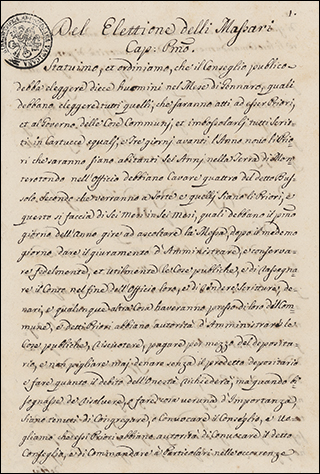 1.
Del Elettione delli Massari
Cap: Pmo.
Statuimo, et ordiniamo, che il Conseglio publico
debba eleggere diece huomini nel Mese di Gennaro, quali
debbano eleggere tutti quelli, che saranno atti ad esser Priori,
et al Governo delle Cose Communi, et imbossolarli tutti scrit-
ti in Cartucce eguali, e tre giorni avanti l'Anno novo li Prio-
ri che saranno siano abitanti sei Anni nella Terra di Mon-
terotondo nell'Officio debbano Cavare quattro del detto Bus-
solo, secondo che verranno a Sorte e quelli siano li Priori, e
questo si faccia di sei mesi in sei mesi, quali debbano il primo
giorno dell'Anno gire ad ascoltare la Messa, dopo il medemo
giorno dare il giuramento d'Amministrare, e conserva-
re fedelmente, et utilmente le Cose publiche, e di Assegnare
il Conto nel fine dell'Officio loro, e di rendere Scritture, de-
nari, e qualunque altra Cosa haveranno presso di loro del Com-
mune, e detti Priori abbiano autorità d'Amministrare le
Cose publiche, Riscotere, pagare per mezzo del deposita-
rio, e non pigliare mai denare senza il predetto depositario
e fare quanto il debito dell'Onestà richiederà, ma quando bi-
sognasse di Risolvere, o fare cosa veruna d'Importanza,
siano tenuti di Congregare, o Convocare il Conseglio, e Vo-
gliamo che essi Priori abbiano autorità di Convocare il detto
Conseglio, e di Commandare a Particolari nelle occorrenze